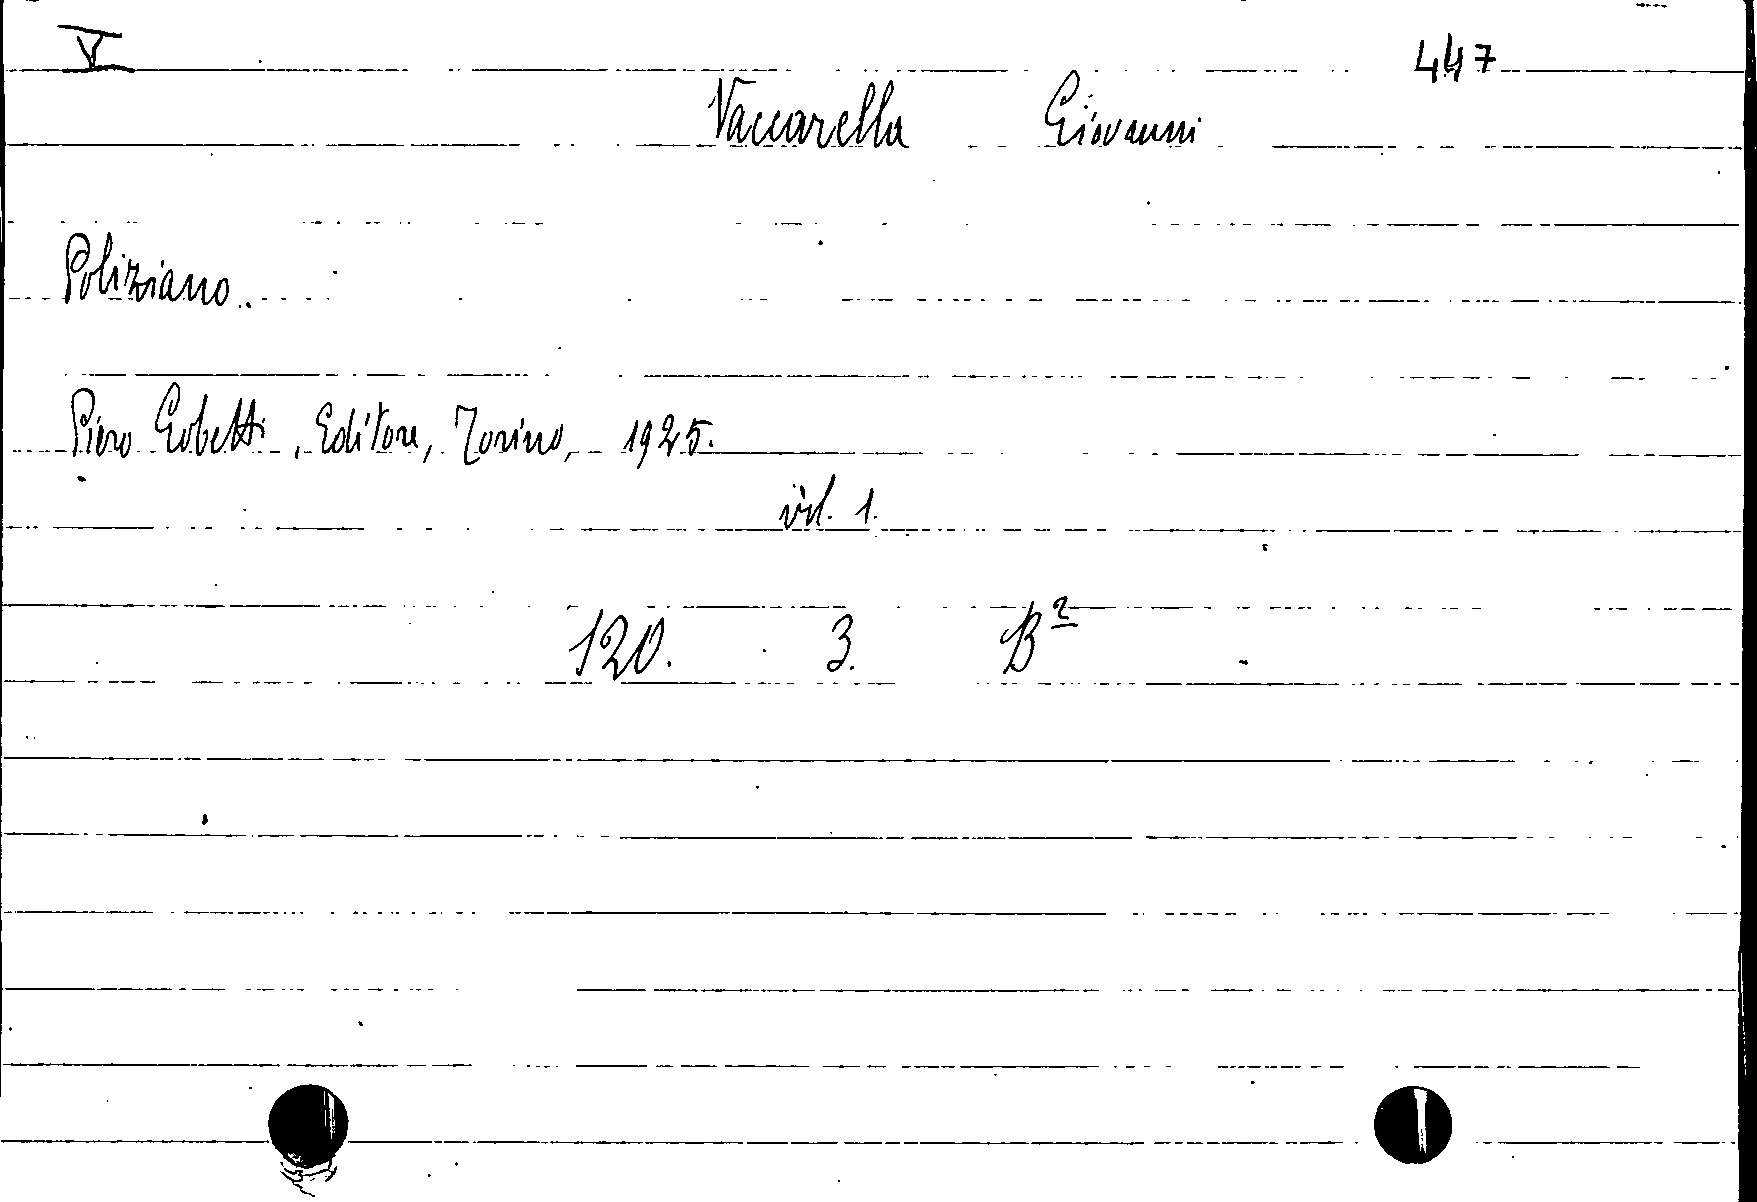 V 447
Vaccarella Giovanni
Poliziano.
Piero Gobetti, Editore, Torino, 1925.
vol. 1.
120. 3. B²